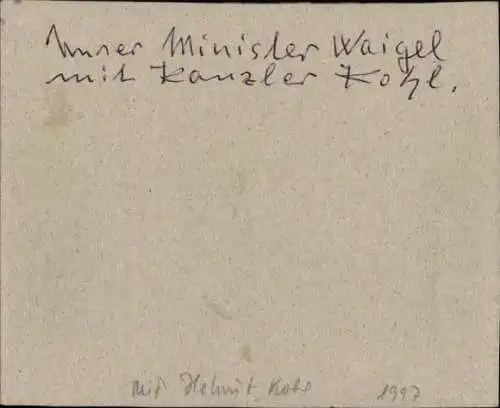 Inner Minister Waigel
mit Kanzler Kohl.
mit Helmut Kohl 1997